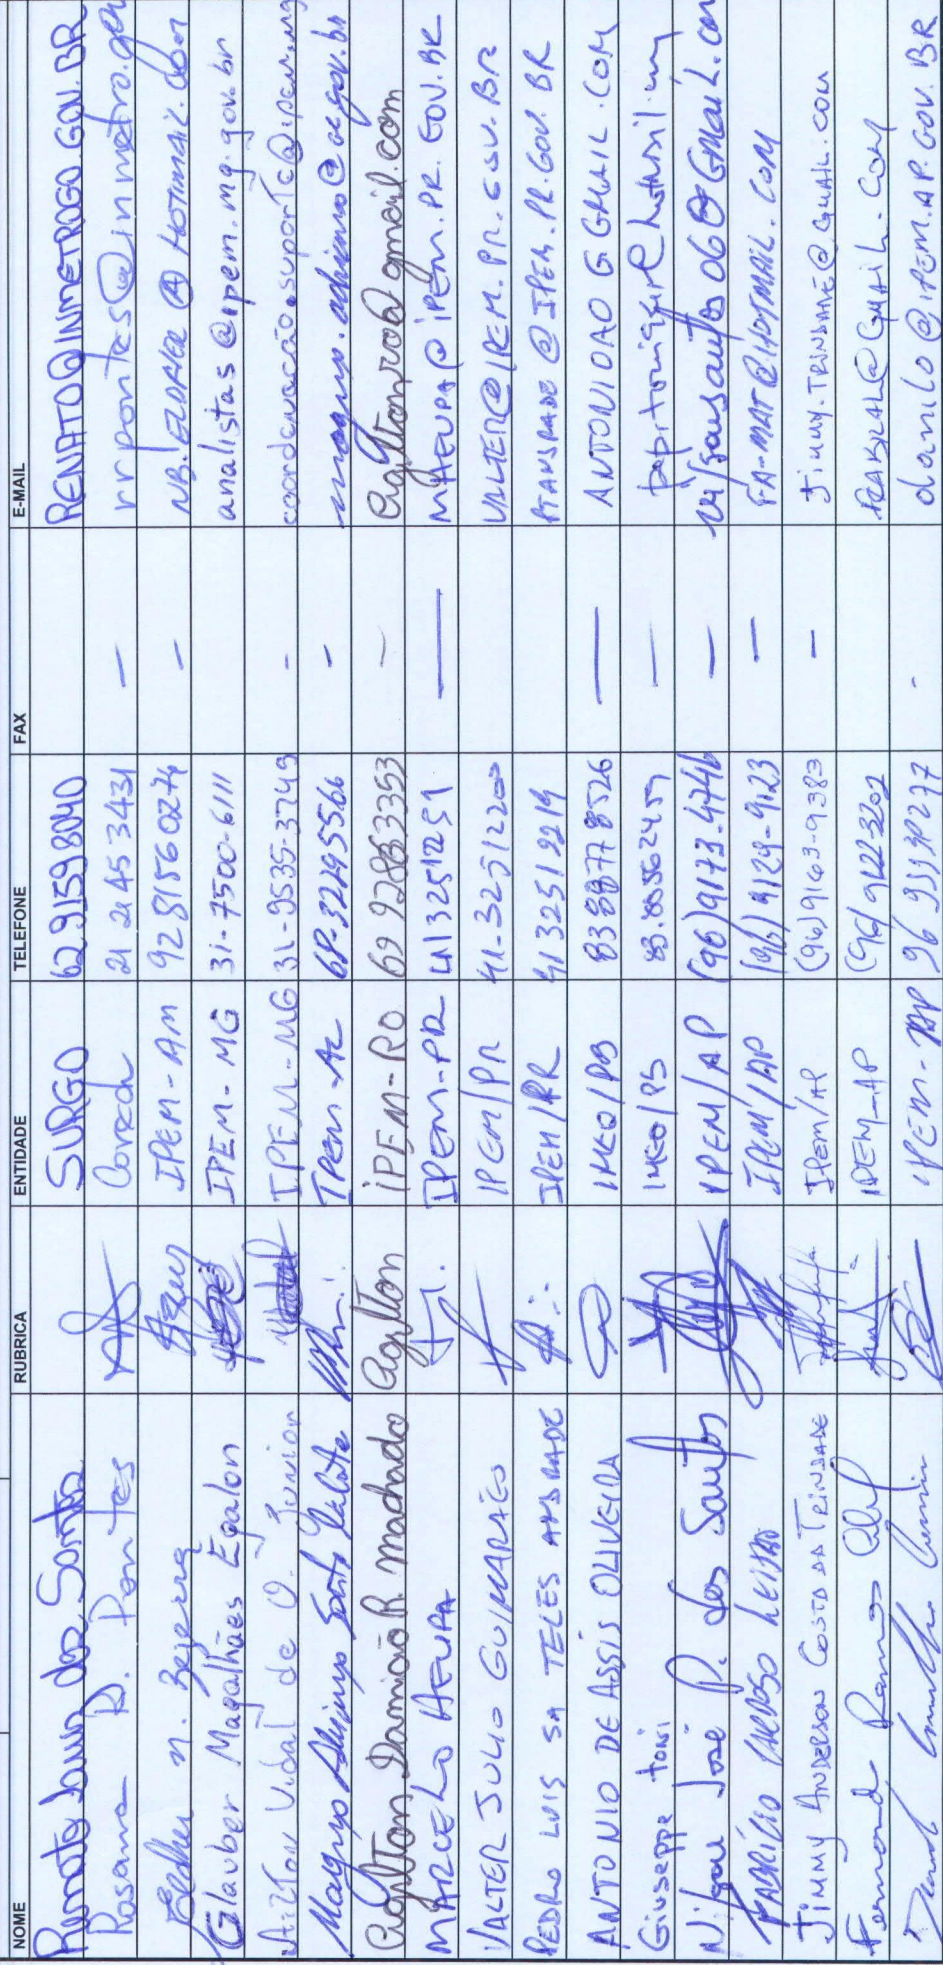 NOME RUBRICA ENTIDADE TELEFONE FAX E-MAIL
Renato dos Santos SURGO 62 91598040 RENATO@INMETROGO.GOV.BR
Rosana R. Pontes 21 21453431 — rrpontes@inmetro.gov
N. Bezerra IPEM-AM 92 81560274 — @HOTMAIL.COM
Glauber Magalhães Egalon IPEM-MG 31-7500-6111 analistas@ipem.mg.gov.br
Airton Vidal de O. Junior IPEM-MG 31-9535-3749 - coordenação.suporte@ipem.mg
Magnyo IPEM-AC 68-32295566 -
Aglton Damião R. Machado Aglton IPEM-RO 69 92853353 – agltonvrod@gmail.com
MARCELO HEUPA IPEM-PR 41 3251251 — MHEUPA@IPEM.PR.GOV.BR
VALTER JULIO GUIMARÃES IPEM/PR 41-32512200 VALTER@IPEM.PR.GOV.BR
PEDRO LUIS SA TELES ANDRADE IPEM/PR 41 32512219 @IPEM.PR.GOV.BR
ANTONIO DE ASSIS OLIVEIRA IMEQ/PB 83 88778526 — ANTONIOAO@GMAIL.COM
Giuseppe Toni IMEQ/PB 83.88562459 —
Nilson José P. dos Santos IPEM/AP (96)9173-4746 —
FABRÍCIO CARDOSO LEITÃO IPEM/AP (96)9129-9123 — FA-MAT@HOTMAIL.COM
JIMMY ANDERSON COSTA DA TRINDADE IPEM/AP (96)9163-9383 - JIMMY.TRINDADE@GMAIL.COM
Fernando Ramos IPEM-AP (96)9122-3202 @GMAIL.COM
IPEM-AP - danilo@IPEM.AP.GOV.BR